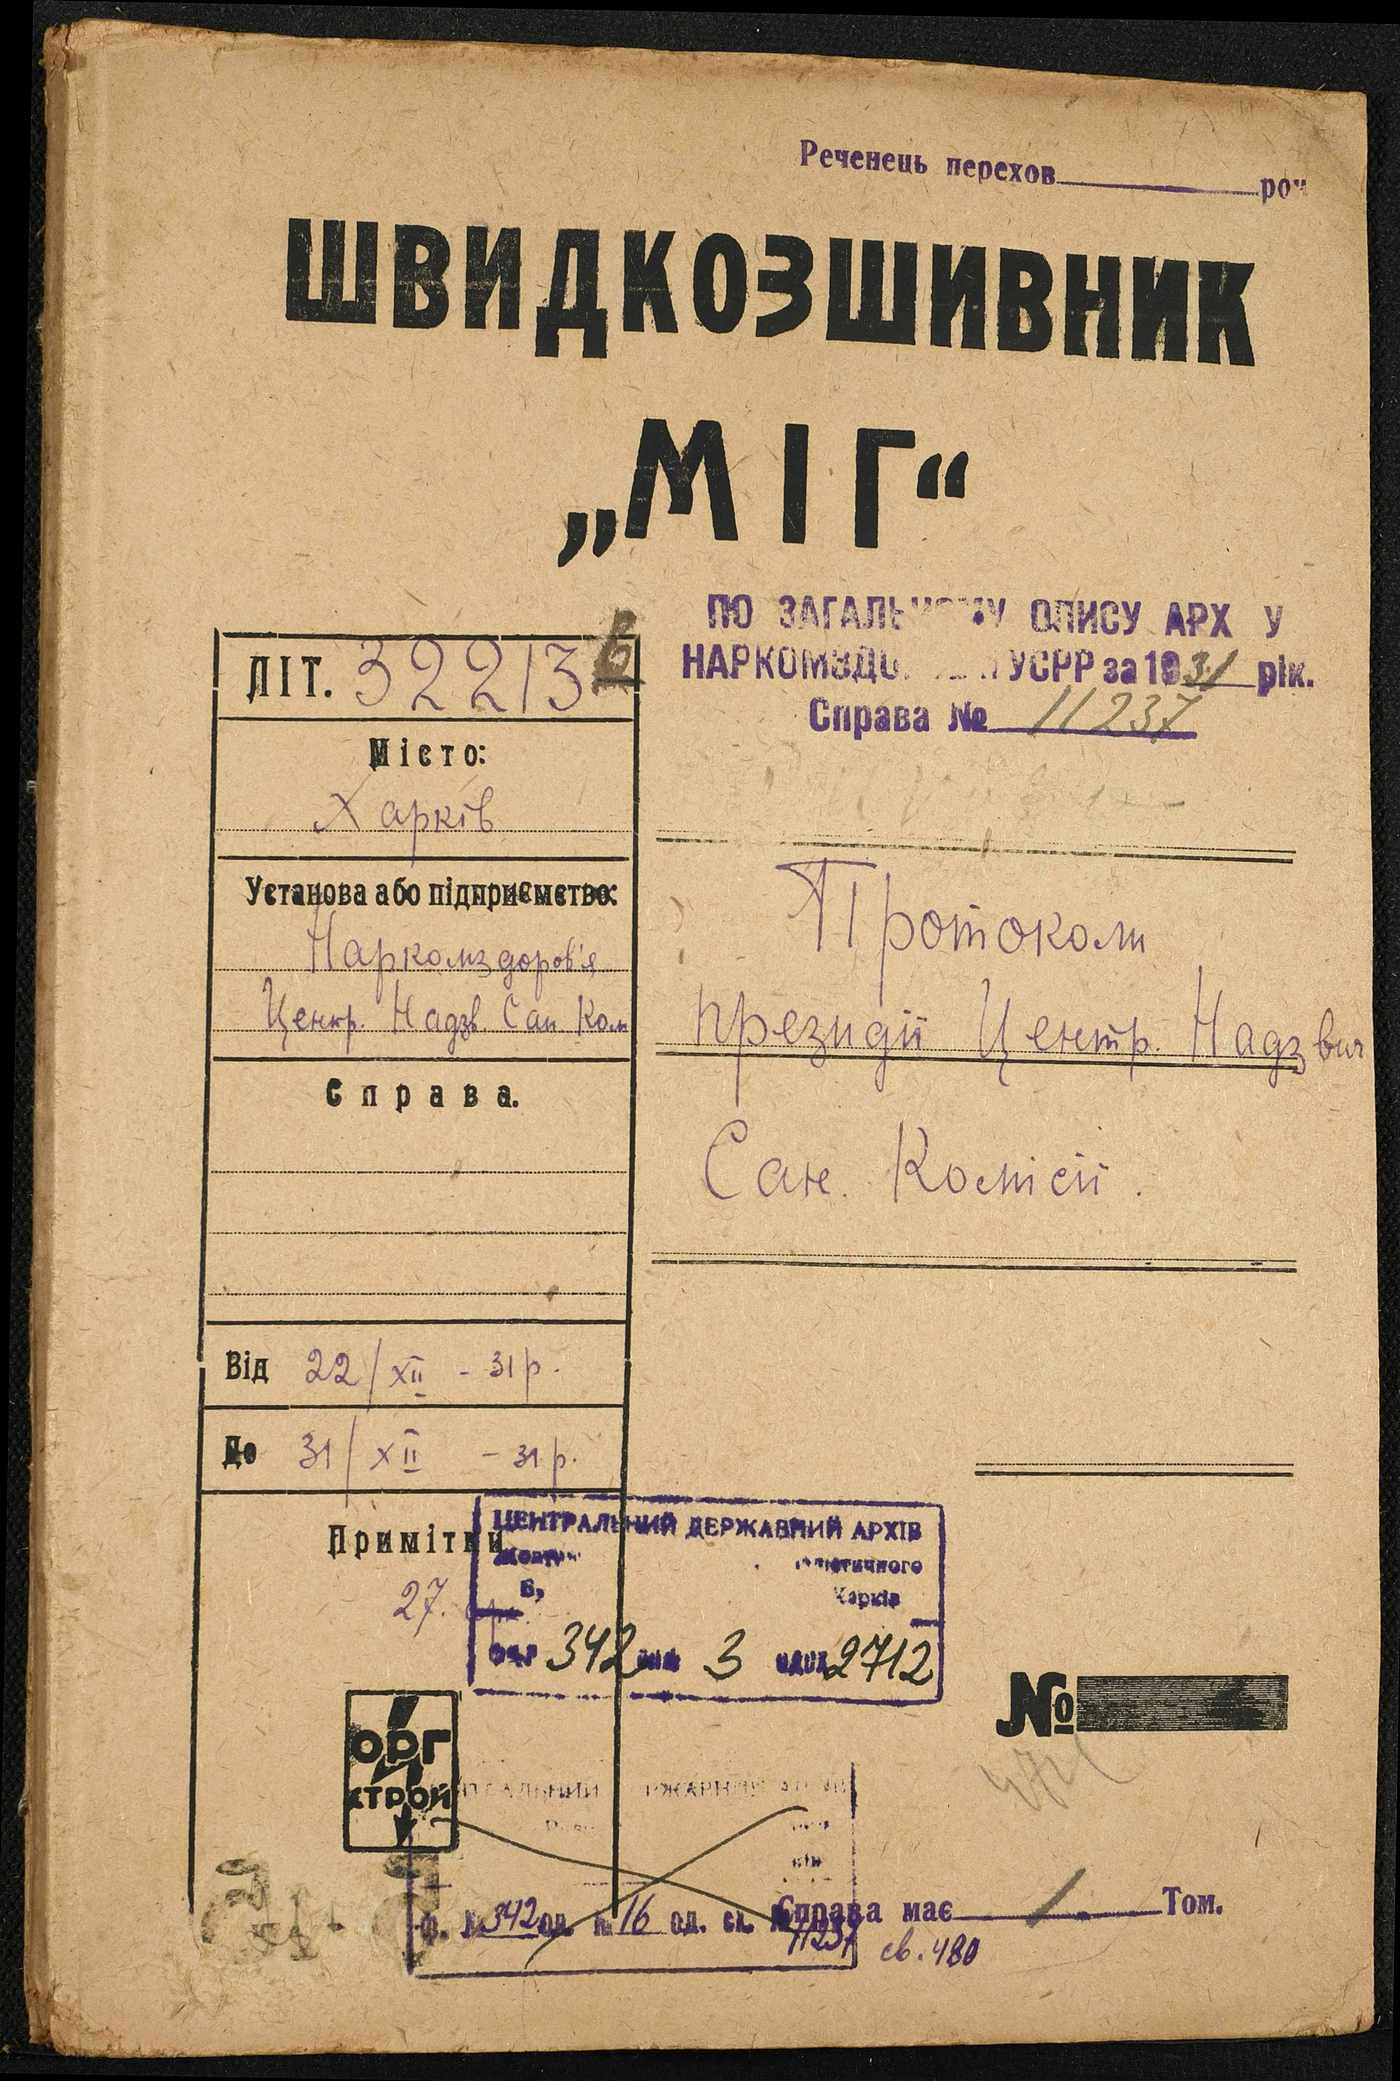 Реченець перехов роч
ШВИДКОЗШИВНИК
„МІГ“
ПО ЗАГАЛЬНОМУ ОПИСУ АРХ У
НАРКОМЗДО УСРР за 1931 рік.
Справа № 11237
ЛІТ. 32213 Б
Місто:
Харків
Установа або підприємство:
Наркомздоров'я
Центр. Надзв. Сан Ком
Справа.
Протоколи
президії Центр. Надзвич
Сан. Комісії.
Від 22/XII - 31 р.
До 31/XII - 31 р.
Примітки
27.
ЦЕНТРАЛЬНИЙ ДЕРЖАВНИЙ АРХІВ
Харків
фонд 342 опис 3 од.зб. 2712
№
ОРГ
СТРОЙ
ф. № 342 оп. № 16 од. сх. № 11237
Справа має 1 Том.
св. 480